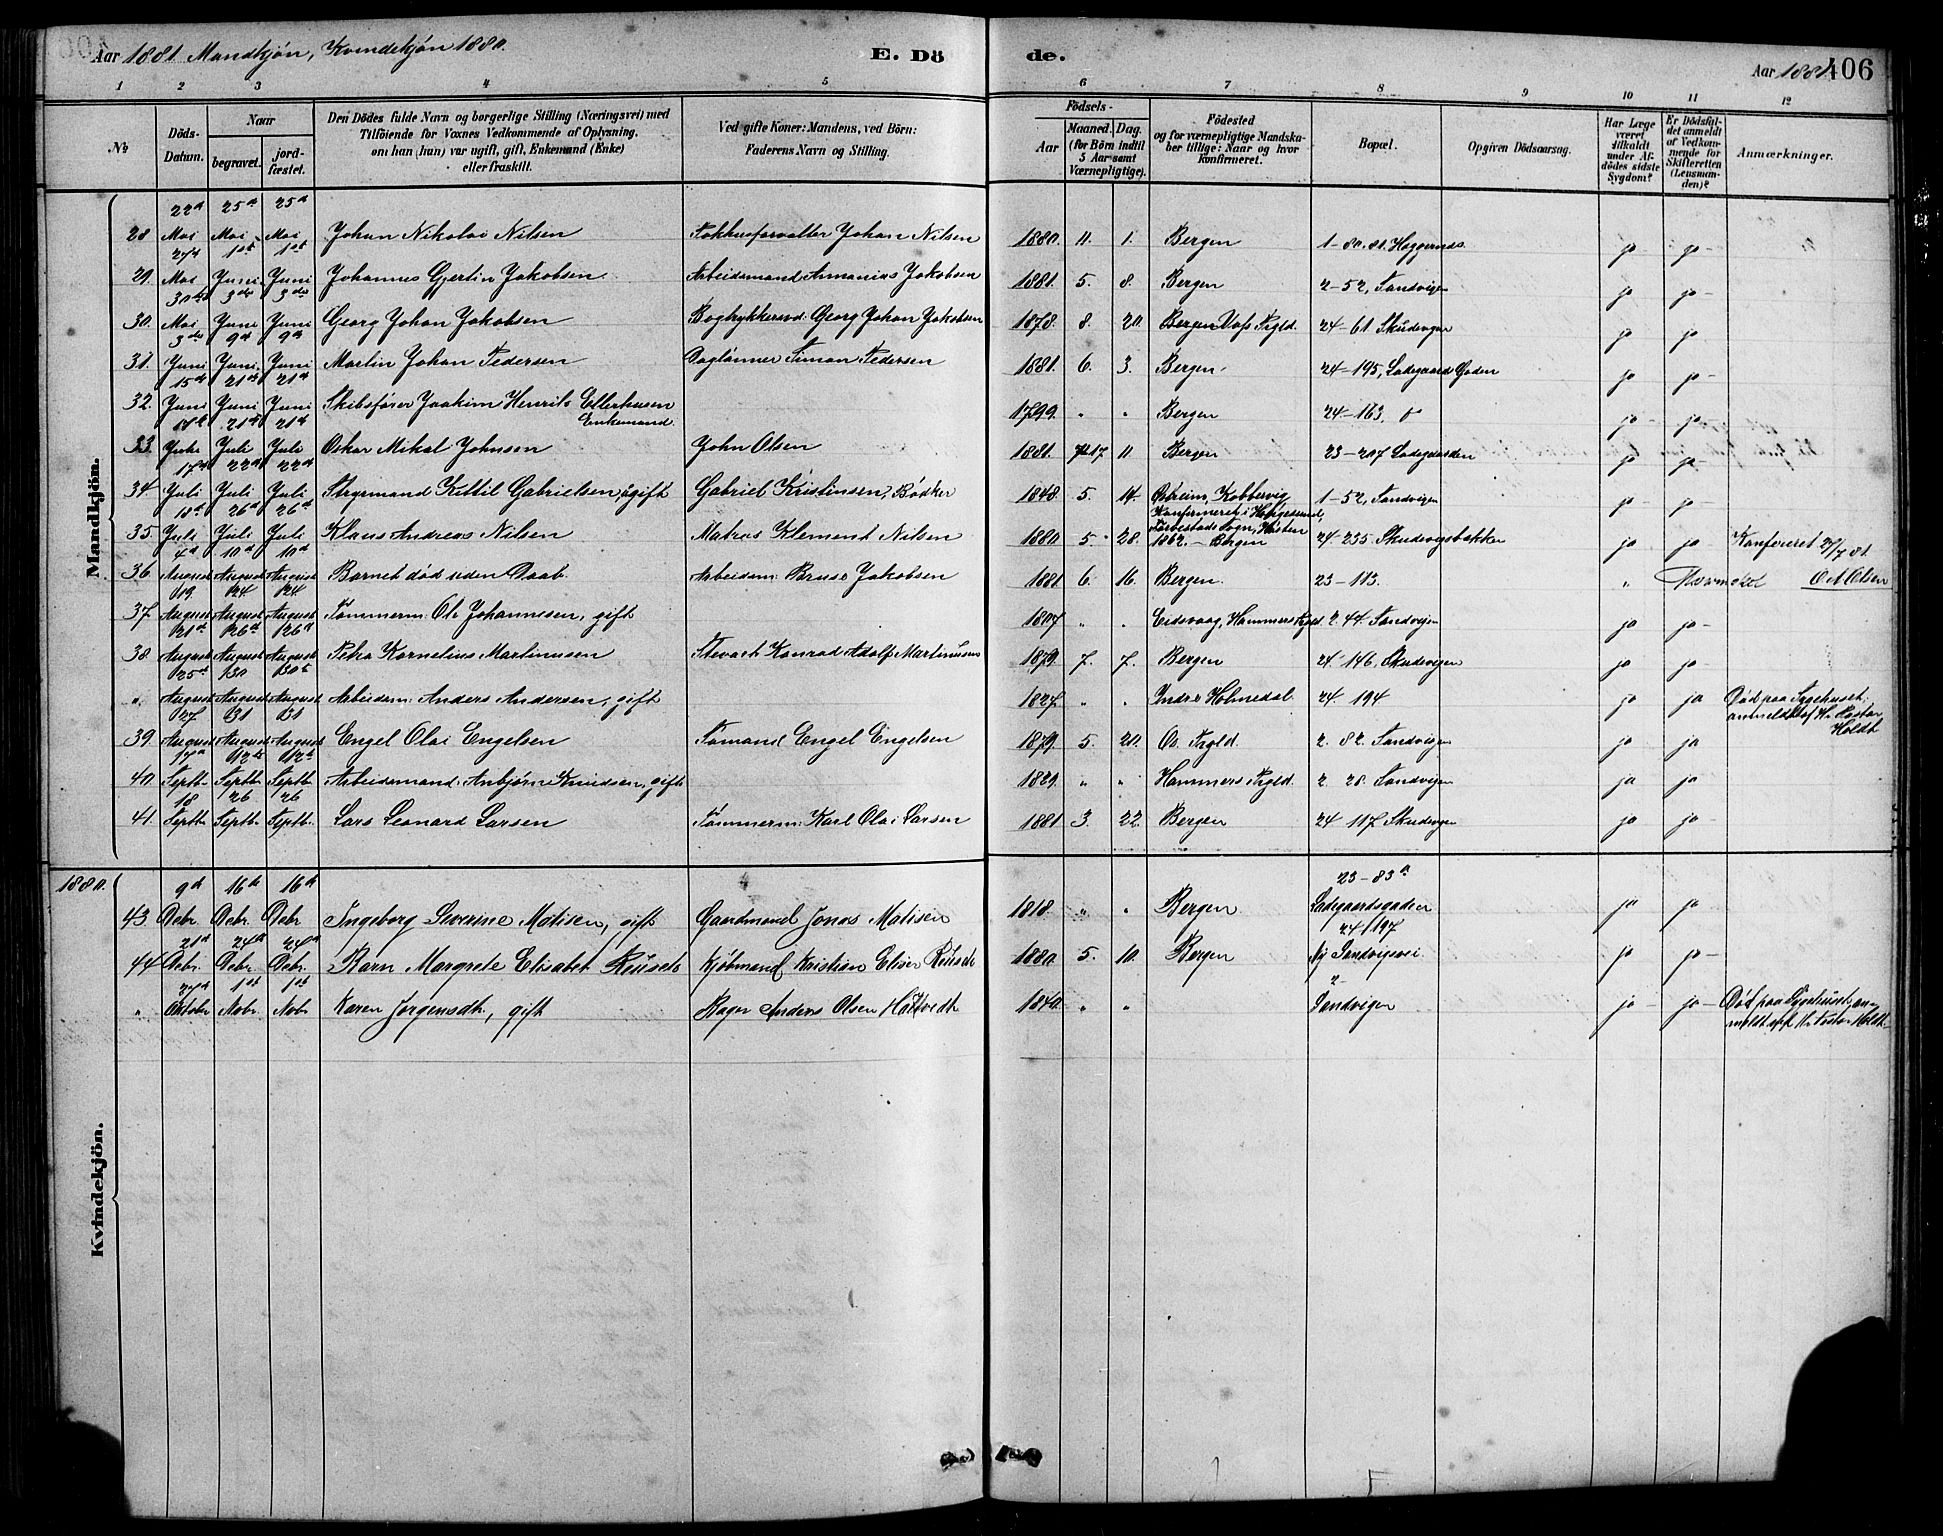 Aar 1881 Mandkjøn, Kvindekjøn 1880.
E. Dö
de.
Aar 1881
106
1 2 3 4 5 6 7 8 9 10 11 12
№
Döds-Datum.
Naar
begravet.
jordfæstet.
Den Dödes fulde Navn og borgerlige Stilling (Næringsvei) med
Tilföiende for Voxnes Vedkommende af Oplysning,
om han (hun) var ugift, gift, Enkemand (Enke)
eller fraskilt.
Ved gifte Koner: Mandens, ved Börn:
Faderens Navn og Stilling.
Födsels-
Aar
Maaned. Dag.
(for Börn indtil
5 Aar samt
Værnepligtige).
Födested
og for værnepligtige Mandskaber tillige: Naar og hvor
Konfirmeret.
Bopæl.
Opgiven Dödsaarsag.
Har Læge
været
tilkaldt
under Afdödes sidste
Sygdom?
Er Dödsfaldet anmeldt
af Vedkommende for
Skifteretten
(Lensmanden)?
Anmærkninger.
Mandkjön.
22d 25de 25de
28 Mai Mai Mai Johan Nikolai Nilsen Johan Nilsen 1880. 11. 1. Bergen 1-80.81. Heggernes ja ja
27d 1st 1st
29. Mai Juni Juni Johannes Gjertin Jakobsen Arbeidsmand Annanias Jakobsen 1881. 5. 8. Bergen 2-52, Sandvigen ja ja
30de 3de 3de
30. Mai Juni Juni Georg Johan Jakobsen Georg Johan Jakobsen 1878. 8. 20 Bergen 24-61 Skudevigen ja ja
3de 9d 9d
31. Juni Juni Juni Martin Johan Pedersen Daglønner Simon Pedersen 1881. 6. 3. Bergen 24-195, Ladegaards Gaden ja ja
15d 21de 21d
32. Juni Juni Juni Skibsfører Joakim Henrik Ellerhusen Enkemand. 1799. " " Bergen 24-163. ja ja
21de 21d
33. Juli Juli Juli Oskar Mikal Johnsen John Olsen 1881. 11 Bergen 23-207 Ladegaarden ja ja
17d 22d 22d
34 Juli Juli Juli Styrmand Kittil Gabrielsen, ugift Gabriel Kristinsen, Bødker 1848. 5. 14. Østreim, Kobbervig 1-52, Sandvigen ja ja
Konfirmeret i Haugesund,
18d 26d 26d
35. Juli Juli Juli Klaus Andreas Nilsen Matros Klement Nilsen 1880 5 28. 1862. - Bergen 24-235 Skudevigsbakken ja ja Konfereret 27/7 81.
4d 10d 10d
36. August August August Barnet død uden Daab. Arbeidsm: Jakobsen 1881. 6. 16. Bergen. 23-113. " O A Olsen
19. 24 24
37. August August August Tømmerm. Ole Johannesen, gift 1807 " " Eidsvaag, Hammers Pgld 2. 44. Sandvigen ja ja
21d 26d 26d
38. August August August Peka Kornelius Martinusen Stuvart Konrad Adolf Martinusen 1879. 7. 7. Bergen 24-146, Skudevigen ja ja
25d 30 30
" August August August Arbeidsm: Anders Andersen, gift 1827 " " Indre Holmedal. 24. 194 ja ja Død paa Sygehuset,
anmeldt af Hr. Pastor
Holdt
27 31 31
39. August August August Engel Olai Engelsen Sømand Engel Engelsen 1879. 5. 20. Os Pgld. 2. 82. Sandvigen ja ja
12 12
40. Septb. Septb. Septb. Arbeidsmand Anbjørn Knudsen, gift " " Hammers Pgld. 2 28. Sandvigen ja ja
18 26 26
41. Septb. Septb. Septb. Lars Leonard Larsen Tømmerm: Karl Olai Larsen 1881 3. 22. Bergen 24 117 Skudevigen ja ja
Kvindekjön.
1880.
9d 16de 16d 23-83a
43. Debr. Debr. Debr Ingeborg Severine Matisen, gift Gaardmand Jonas Matisen 1818. " " Bergen Ladegaardsgaden ja ja
21d 24d 24d 24/197
44 Debr. Debr. Debr. Karn Margrete Elisabet Reusch Kjøbmand Kristian Reusch 1880. 5. 10. Bergen Ny Sandvigsvei ja ja
27d 1st 1st 2-
" Oktobr Nobr. Nobr Karen Jørgensdtr, gift Anders Olsen 1840. " " Sandvigen ja ja Død paa Sygehuset, anmeldt af Hr. Pastor Holdt.